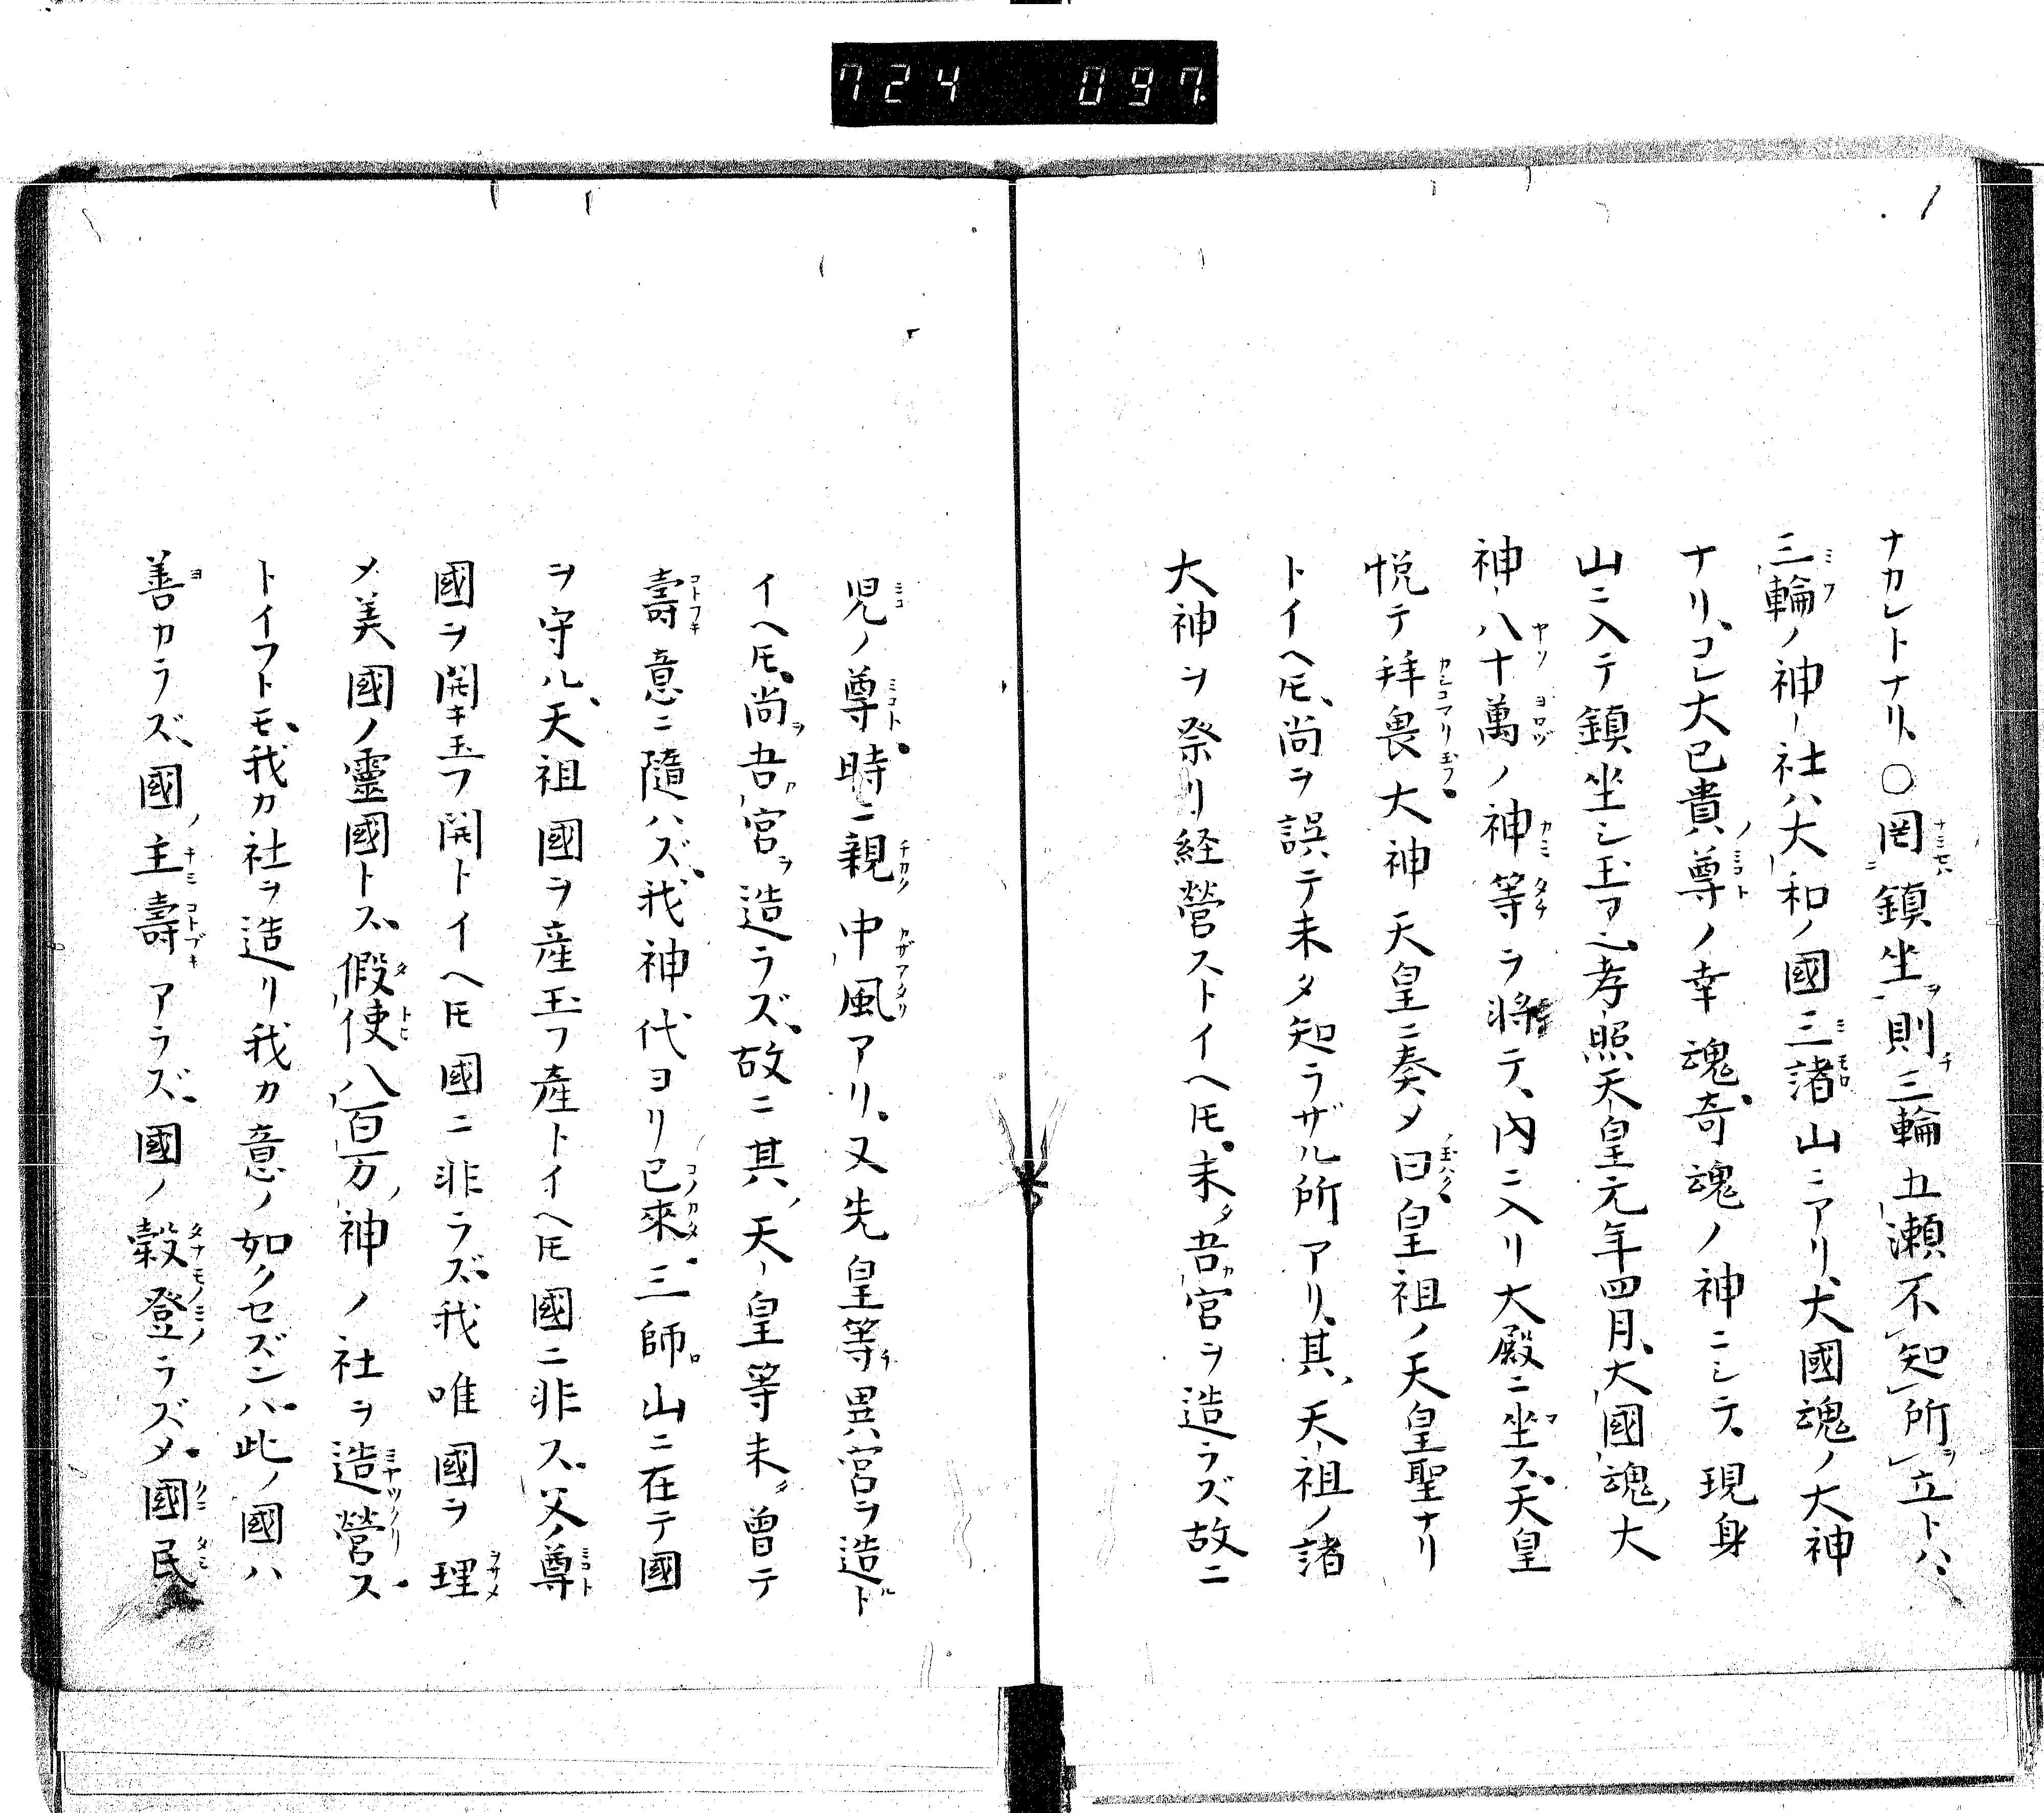 724 097
ナカレトナリ、〇罔鎮坐則三輪五瀬不知所立トハ、
三輪ノ神社ハ大和ノ國三諸山ニアリ、大國魂ノ大神
ナリ、コレ大已貴尊ノ幸魂奇魂ノ神ニシテ、現身
山ニ入テ鎮坐シ玉フ、孝照天皇元年四月、大國魂大
神八十萬ノ神等ヲ将テ、内ニ入リ大殿ニ坐ス、天皇
悦テ拜畏大神天皇ニ奏メ曰皇祖ノ天皇聖ナリ
トイヘ𪜈、尚ヲ誤テ未タ知ラザル所アリ、其天祖ノ諸
大神ヲ祭リ経營ストイヘ𪜈、未タ吾宮ヲ造ラズ故ニ
児ノ尊時ニ親中風アリ、又先皇等異宮ヲ造ルト
イヘ𪜈、尚吾宮ヲ造ラズ、故ニ其天皇等未曽テ
壽意ニ隨ハズ、我神代ヨリ已來三師山ニ在テ國
ヲ守ル、天祖國ヲ産玉フ産トイヘ𪜈國ニ非ス、父ノ尊
國ヲ開キ玉フ開トイヘ𪜈國ニ非ラズ、我唯國ヲ理
メ美國ノ靈國トス、假使八百万神ノ社ヲ造營ス
トイフトモ、我カ社ヲ造リ我カ意ノ如クセズンハ、此ノ國ハ
善カラズ、國主壽アラズ、國ノ穀登ラズメ、國民